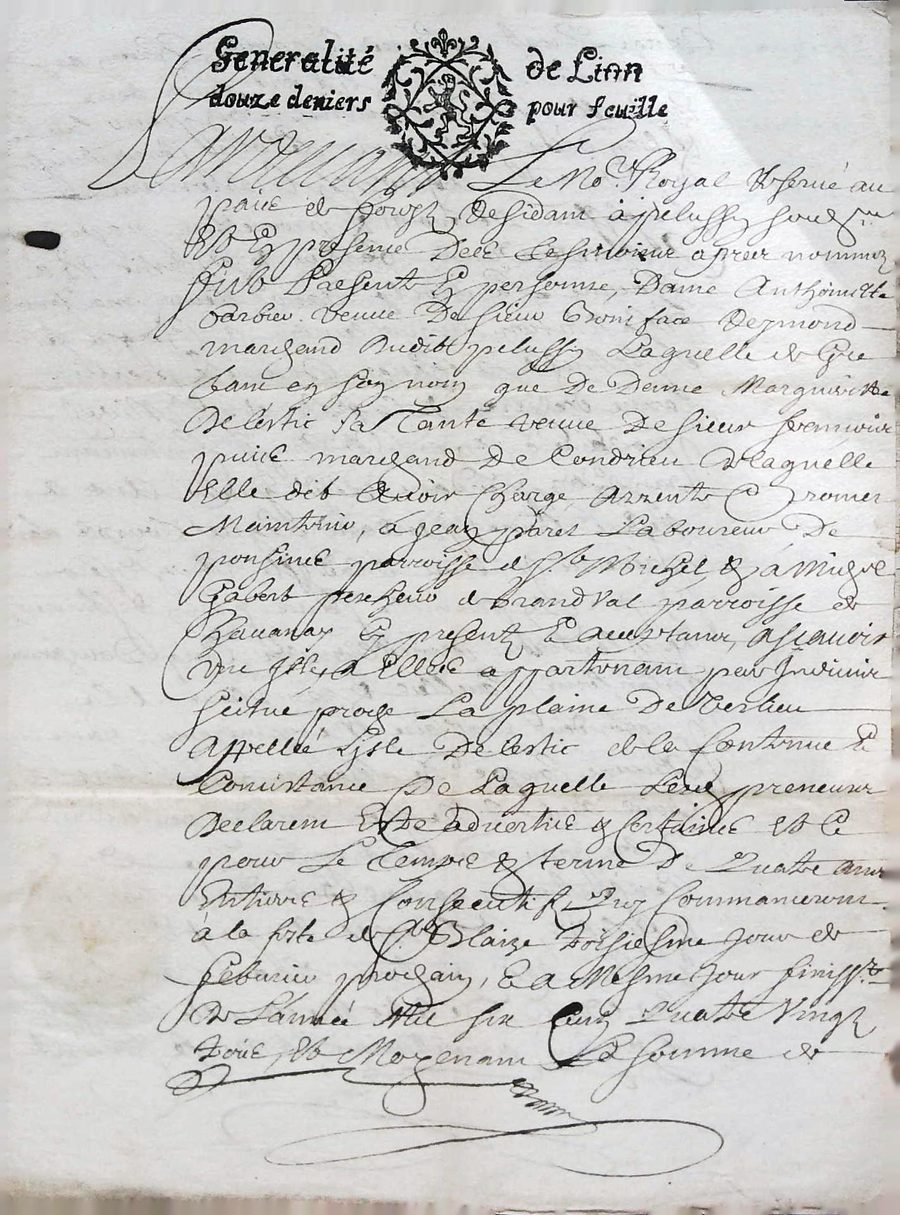 Generalité de Lion
douze deniers pour feuille
Pardevant Le No.re Royal reservé au
païs de forestz residant à pelussy soubz.né
Et En presence Des tesmoins apres nommez
fut Presente En personne, Dame Anthoinette
barbier vevve De sieur Boniface Reymond
marchand dudit pelussy Laquelle de Gré
tant en son nom que De Dame Margueritte
Delestic sa Tante vevve De sieur
marchand De Condrieu De laquelle
Elle dit Avoir Charge, arrente & promet
Maintenir, à Jean paret Laboureur De
parroisse de St Michel & à
Gabert pescheur de Grand Val parroisse de
Chavanay Cy presentz & acceptans, ascavoir
une Isle, a Elles appartenant par Indivis
scitué proche La plaine De Verlieu
Appellée Lisle Delestic de la Contenue &
Consistance De Laquelle Lesd preneurs
Declarent Estre advertis & Certains Et Ce
pour Le Temps & terme De Quatre ans
Entiers & Consecutifs, Quy Commanceront
à la feste de St Blaize troisiesme Jour de
febvrier prochain, & a Mesme Jour finiss.t
De L'année Mil six Cens Quatre Vingtz
trois, Et Moyenant La somme de